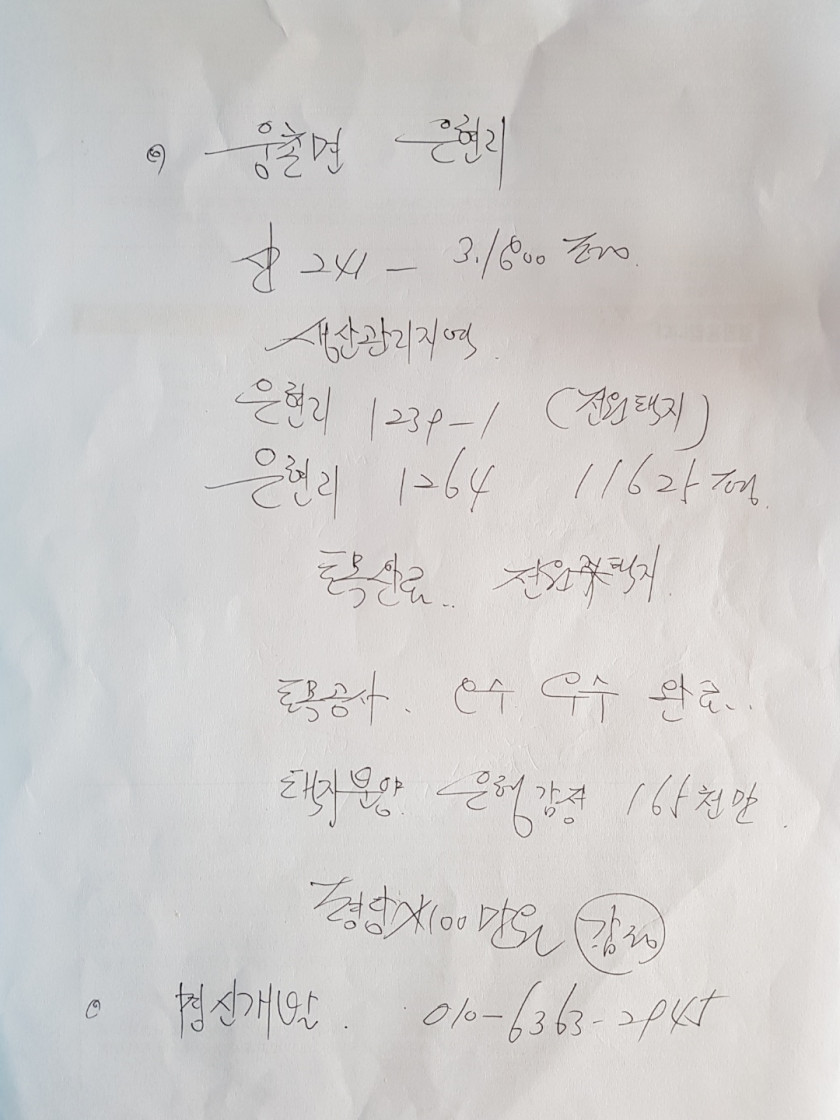 웅촌면 은현리
산 241 - 3,1600 평
생산관리지역.
은현리 1239-1 (전원택지)
은현리 1264 1162평.
토목완료.. 전원택지.
토목공사. 오수 우수 완료..
택지분양. 은행감정 16억5천만.
평당 100만원 감정
개발. 010-6363-2945